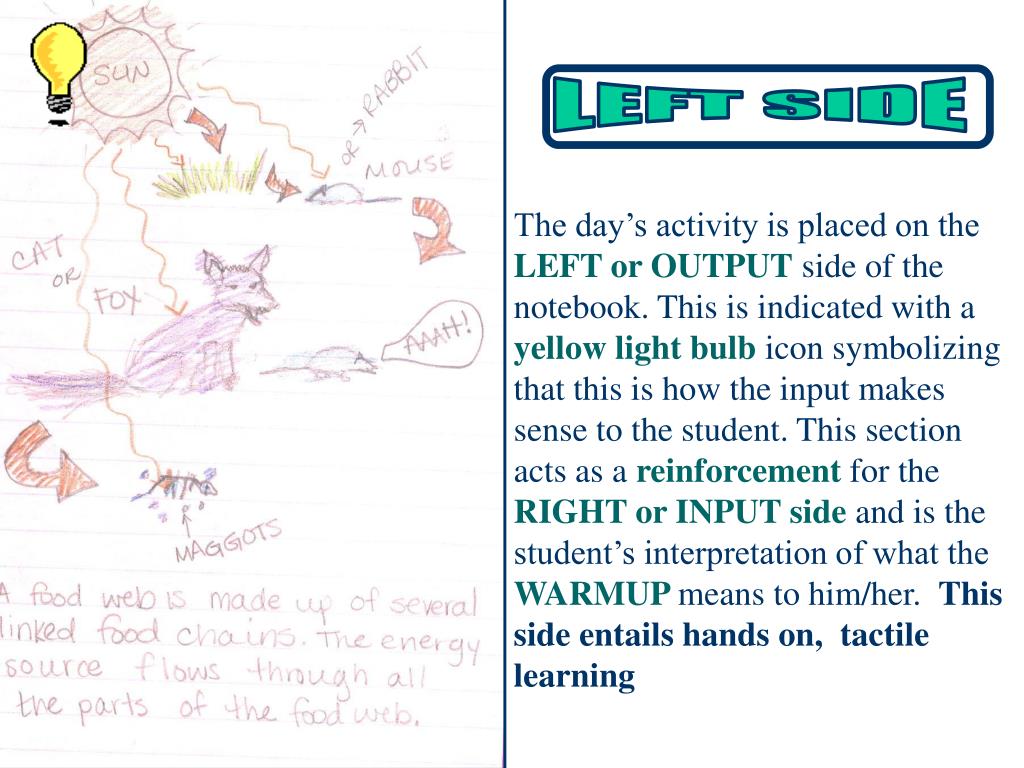 SUN
OR → RABBIT
MOUSE
CAT
OR
FOX
AAAH!
MAGGOTS
A food web is made up of several
linked food chains. The energy
source flows through all
the parts of the food web.
LEFT SIDE
The day’s activity is placed on the
LEFT or OUTPUT side of the
notebook. This is indicated with a
yellow light bulb icon symbolizing
that this is how the input makes
sense to the student. This section
acts as a reinforcement for the
RIGHT or INPUT side and is the
student’s interpretation of what the
WARMUP means to him/her. This
side entails hands on, tactile
learning